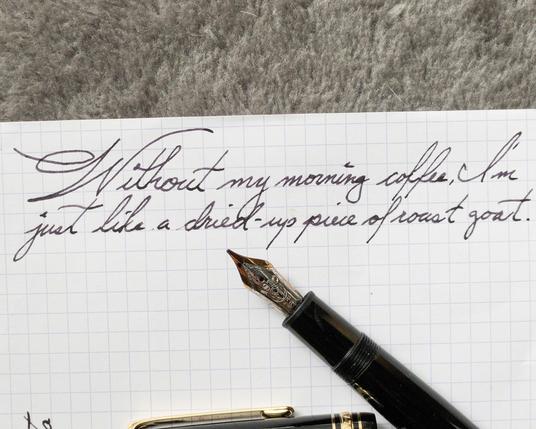 Without my morning coffee, I'm
just like a dried-up piece of roast goat.